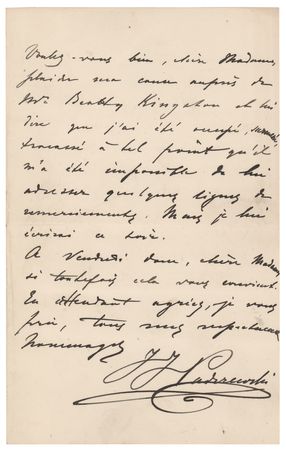 Voulez-vous bien, chère Madame,
plaider ma cause auprès de
Mr Beatty Kingston et lui
dire que j'ai été occupé,
tracassé à tel point qu'il
m'a été impossible de lui
adresser quelques lignes de
remerciements. Mais je lui
écrirai ce soir.
A Vendredi donc, chère Madame,
si toutefois cela vous convient.
En attendant agréez, je vous
prie, tous mes respectueux
hommages
I J Paderewski